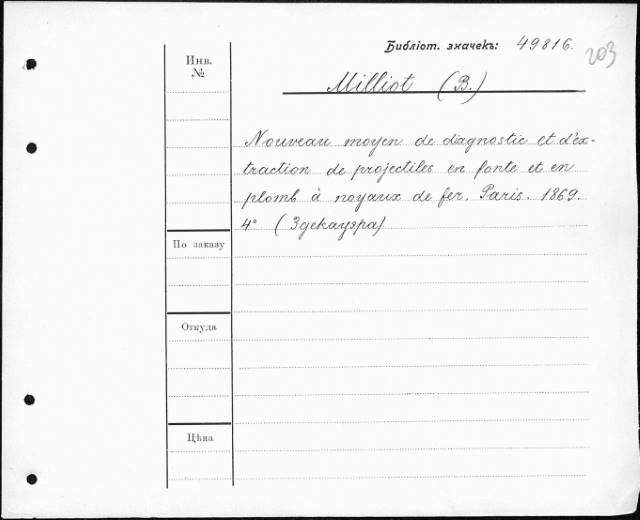 Библіот. значекъ: 49816.
203
Инв. №
Milliot (B.)
Nouveau moyen de diagnostic et d'ex-
traction de projectiles en fonte et en
plomb à noyaux de fer. Paris. 1869.
4° (Здекауэра)
По заказу
Откуда
Цѣна